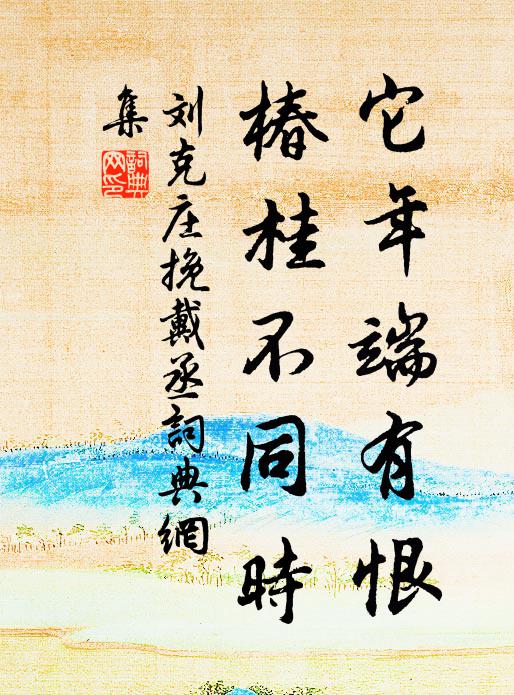 它年端有恨
椿桂不同時
刘克庄挽戴丞詞典網
集
詞典網印